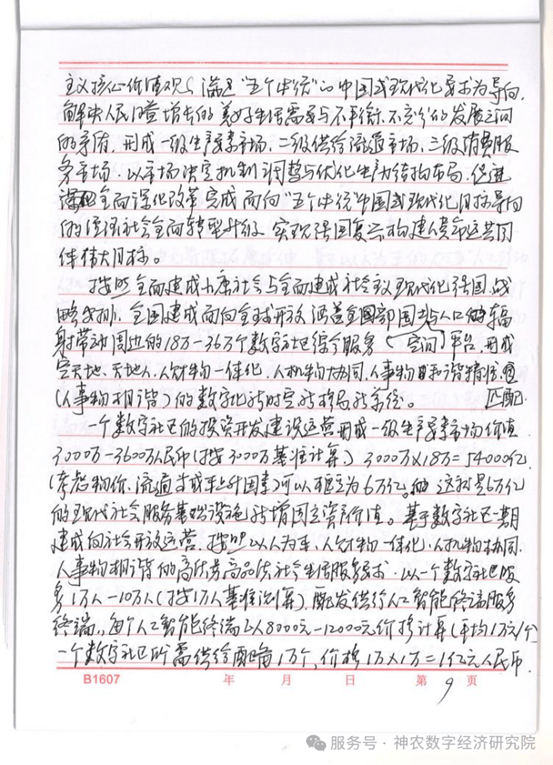 主义核心价值观、满足“五个中统”的中国式现代化要求为导向,
解决人民日益增长的美好生活需要与不平衡.不充分的发展之间
的矛盾,形成一级生产要素市场.二级供给流通市场.三级消费服
务市场.以市场决定机制调整与优化生产力结构布局.促进
全面深化改革完成面向“五个中统”中国式现代化目标导向
的经济社会全面转型升级.实现强国复兴构建人类命运共同
体伟大目标。
按照全面建成小康社会与全面建成社会主义现代化强国战
略安排,全国建成面向全球开放涵盖全国部国土与人口辐
射带动周边的18万-36万个数字社区综合服务(空间)平台.形成
空天地、天地人、人财物一体化、人机物协同、人事物和谐精准
匹配
(人事物相谐)的数字化新时空新格局新系统。
一个数字社区的投资开发建设运营形成一级生产要素市场价值
3000万-3600万人民币(按3000万基准计算) 3000万X18万=54000亿
(考虑物价、流通成本上升因素)可以核定为6万亿。这就是6万亿
的现代社会服务基础设施新增固定资产价值。基于数字社区一期
建成向社会开放运营.按照以人为本、人财物一体化.人机物协同.
人事物相谐的高优秀高品质社会生活服务要求.以一个数字社区服
务1万人-10万人(按1万人基准计算).配发供给人工智能终端服务
终端,每个人工智能终端以8000元-12000元价格计算(平均1万元/个)
一个数字社区所需供给配备1万个,价格1万X1万=1亿元人民币.
B1607 年 月 日 第 9 页
服务号·神农数字经济研究院